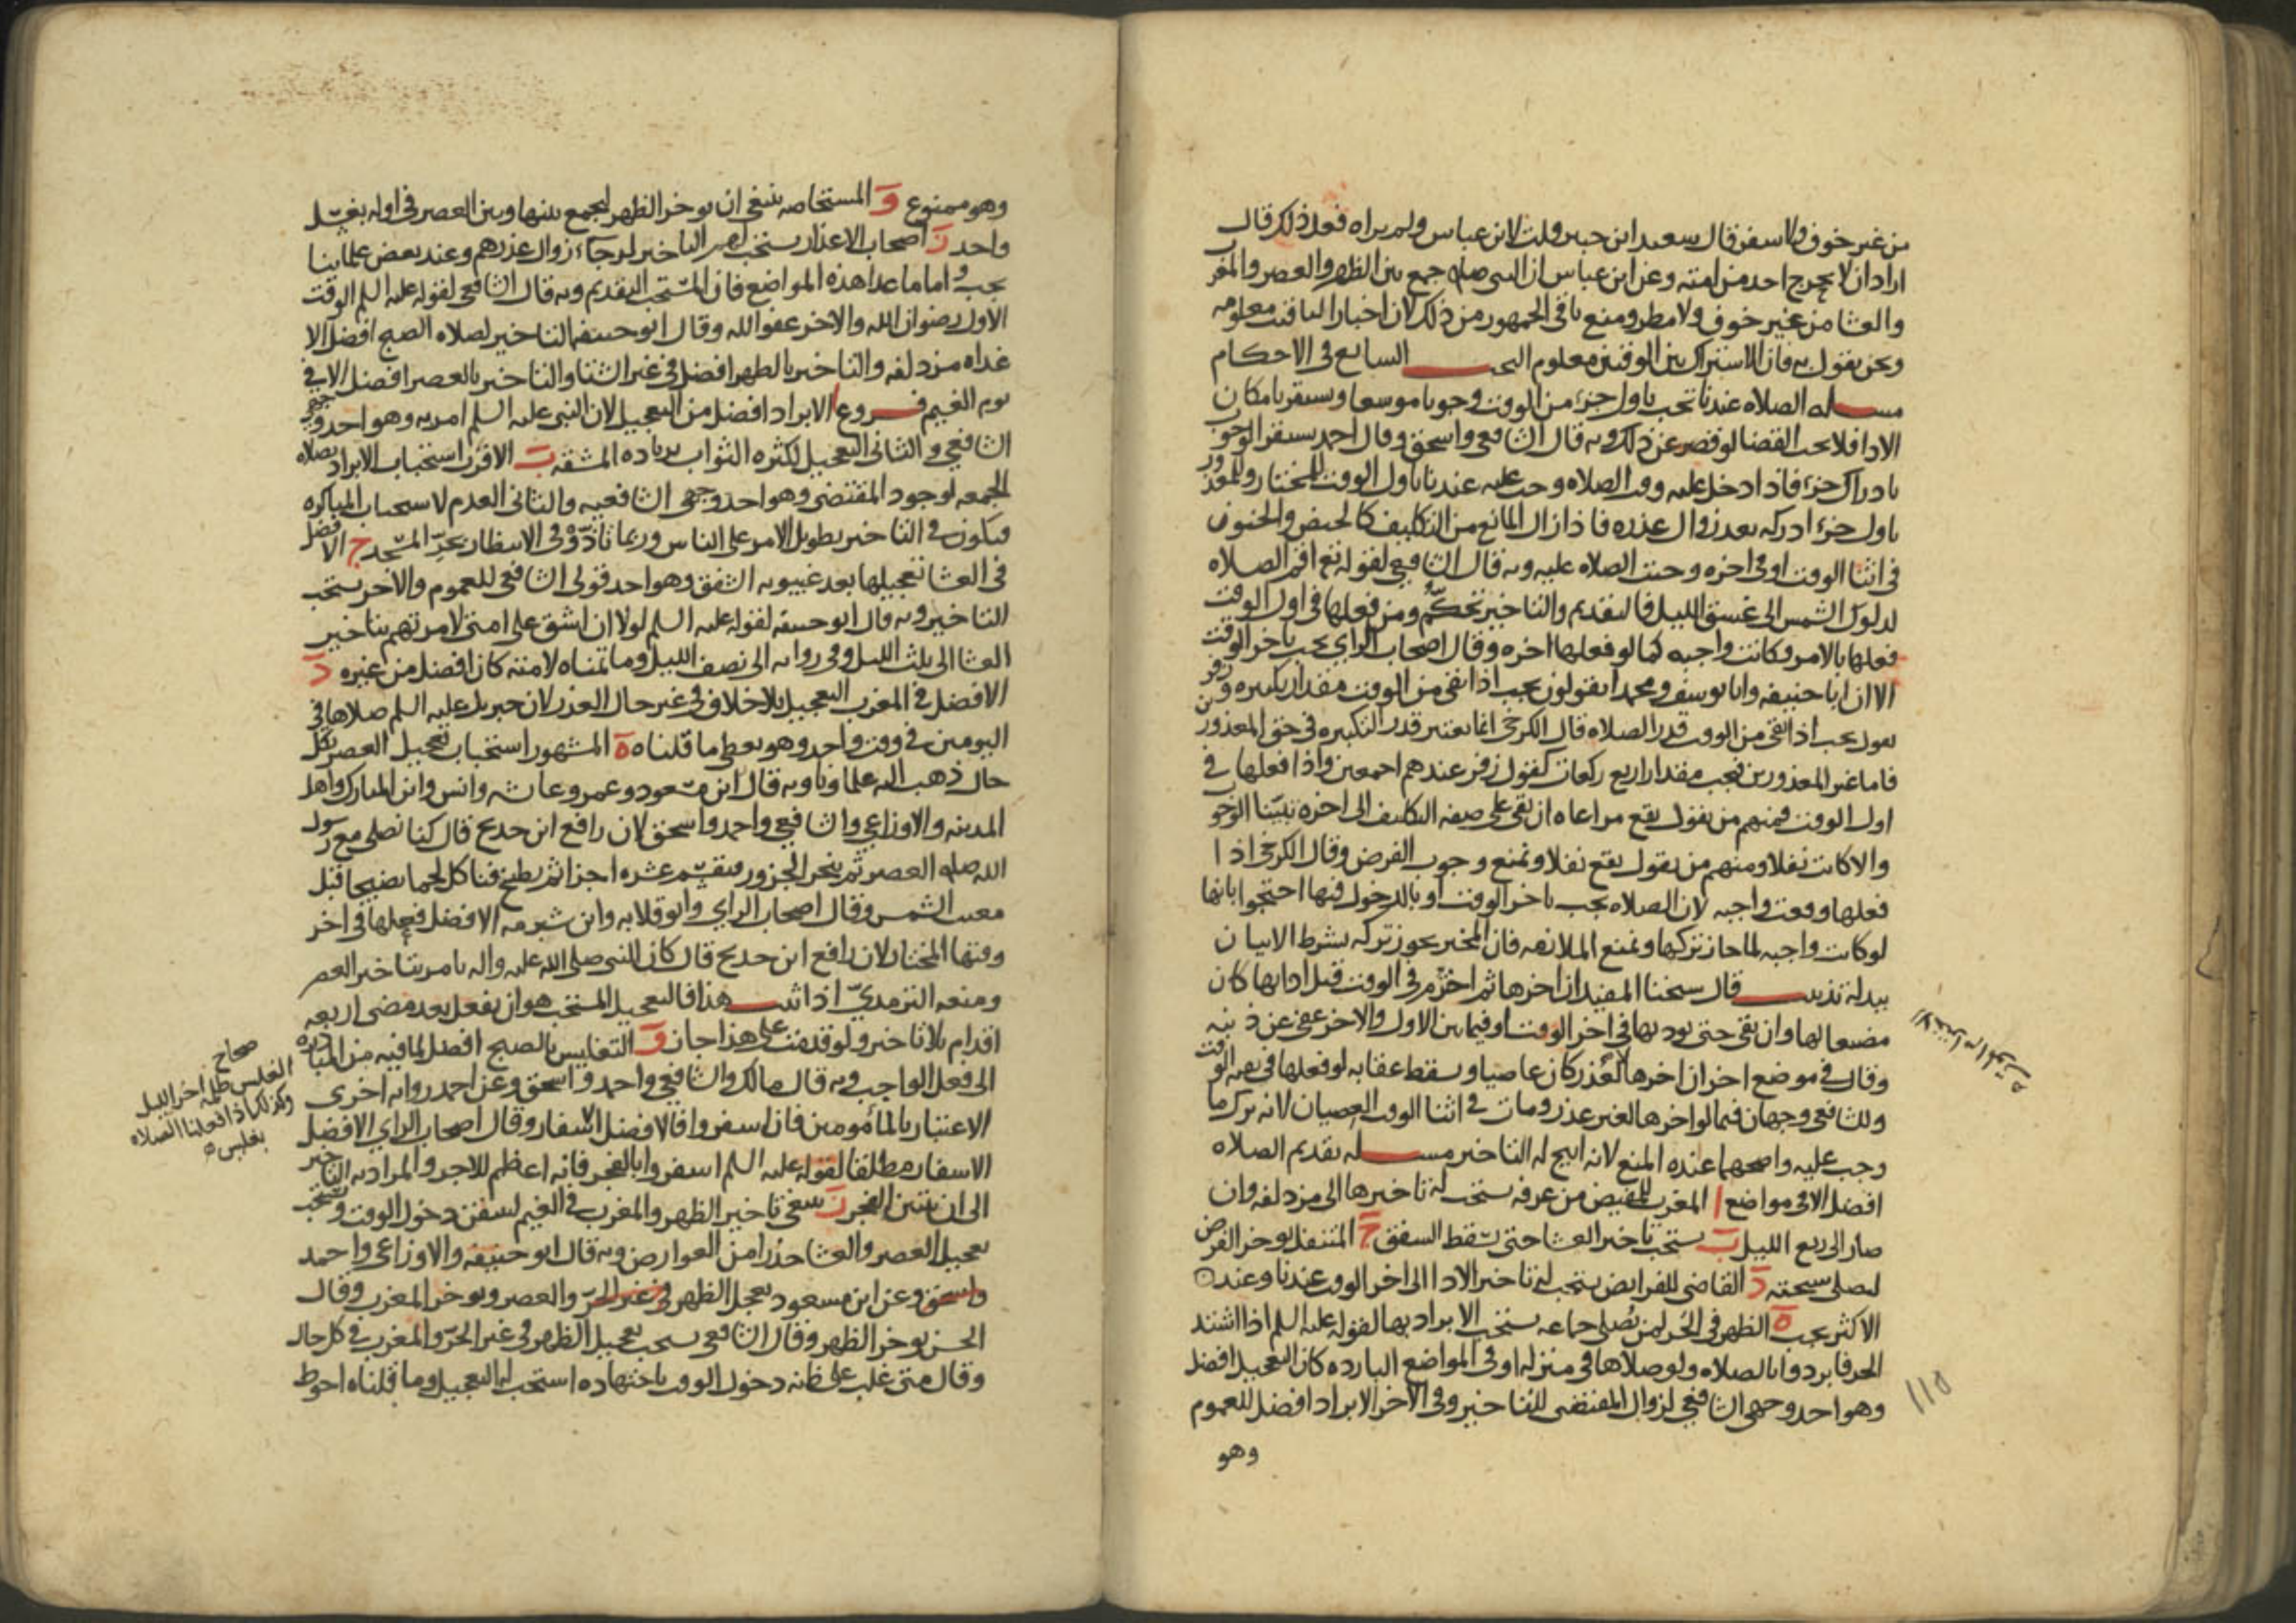 من غير خوف ولا سفر قال سعيد ابن جبير قلت لابن عباس ولم يراه فعل ذلك قال
اراد ان لا يحرج احد من امته وعن ابن عباس ان النبي صلى جمع بين الظهر والعصر والمغرب
والعشا من غير خوف ولا مطر ومنع باقي الجمهور من ذلك لان اخبار التاقيت معلومه
ونحن نقول به فان الاشتراك بين الوقتين معلوم البحث السابع في الاحكام
مسله الصلاه عندنا تجب باول جزء من الوقت وجوبا موسعا ويستقر بامكان
الادا فلا يجب القضا لو قصر عن ذلك وبه قال الشافعي واسحق وقال احمد يستقر الوجوب
بادراك جزء فاذا دخل عليه وقت الصلاه وجب عليه عندنا باول الوقت للمختار وللمعذور
باول جزء ادركه بعد زوال عذره فاذا زال المانع من التكليف كالحيض والجنون
في اثنا الوقت او في اخره وجبت الصلاه عليه وبه قال الشافعي لقوله تع اقم الصلاه
لدلوك الشمس الى غسق الليل فالتقديم والتاخير تحكم ومن فعلها في اول الوقت
فعلها بالامر وكانت واجبه كما لو فعلها اخره وقال اصحاب الراي يجب باخر الوقت
الا ان ابا حنيفه وابا يوسف ومحمدا يقولون يجب اذا بقي من الوقت مقدار تكبيره وزفر
يقول يجب اذا بقي من الوقت قدر الصلاه قال الكرخي انما يعتبر قدر التكبيره في حق المعذورين
فاما غير المعذورين فيجب مقدار اربع ركعات كقول زفر عندهم اجمعين واذا فعلها في
اول الوقت فمنهم من يقول يقع مراعاه ان بقي على صفه التكليف الى اخره تبينا الوجوب
والا كانت نفلا ومنهم من يقول يقع نفلا وتمنع وجوب الفرض وقال الكرخي اذا
فعلها وقعت واجبه لان الصلاه يجب باخر الوقت او بالدخول فيها احتجوا بانها
لو كانت واجبه لما جاز تركها ونمنع الملازمه فان المخير يجوز تركه بشرط الاتيان
ببدله تذنيب قال شيخنا المفيد ان اخرها ثم اخترم في الوقت قبل ادايها كان
مضيعا لها وان بقي حتى يوديها في اخر الوقت او فيما بين الاول والاخر عفي عن ذنبه
وقال في موضع اخر ان اخرها لا لعذر كان عاصيا ويسقط عقابه لو فعلها في بقيه الوقت
وللشافعي وجهان فيما لو اخرها لغير عذر ومات في اثنا الوقت العصيان لانه ترك ما
وجب عليه واصحهما عنده المنع لانه ابيح له التاخير مسله تقديم الصلاه
افضل الا في مواضع ا المغرب للمفيض من عرفه يستحب له تاخيرها الى مزدلفه وان
صار الى ربع الليل ب يستحب تاخير العشا حتى يسقط الشفق ج المتنفل يوخر الفرض
ليصلي سبحته د القاضي للفرايض يستحب له تاخير الادا الى اخر الوقت عندنا وعند
الاكثر يجب ه الظهر في الحر لمن يصلي جماعه يستحب الابراد بها لقوله عليه السلم اذا اشتد
الحر فابردوا بالصلاه ولو صلاها في منزله او في المواضع البارده كان التعجيل افضل
وهو احد وجهي الشافعي لزوال المقتضي للتاخير وفي الاخر الابراد افضل للعموم
وهو
١١٥
وهو ممنوع و المستحاضه ينبغي ان توخر الظهر لتجمع بينها وبين العصر في اوله بغسل
واحد ز اصحاب الاعذار يستحب لهم التاخير لرجاء زوال عذرهم وعند بعض علمائنا
يجب واما ما عدا هذه المواضع فان المستحب التقديم وبه قال الشافعي لقوله عليه السلم الوقت
الاول رضوان الله والاخر عفو الله وقال ابو حنيفه التاخير لصلاه الصبح افضل الا
غداه مزدلفه والتاخير بالظهر افضل في غير الشتا والتاخير بالعصر افضل الا في
يوم الغيم فروع ا الابراد افضل من التعجيل لان النبي عليه السلم امر به وهو احد وجهي
الشافعي والثاني التعجيل لكثره الثواب بزياده المشقه ب الاقرب استحباب الابراد بصلاه
الجمعه لوجود المقتضي وهو احد وجهي الشافعيه والثاني العدم لاستحباب المباكره
فيكون في التاخير تطويل الامر على الناس وربما تاذوا في الانتظار بحر المسجد ج الافضل
في العشا تعجيلها بعد غيبوبه الشفق وهو احد قولي الشافعي للعموم والاخر يستحب
التاخير وبه قال ابو حنيفه لقوله عليه السلم لولا ان اشق على امتي لامرتهم بتاخير
العشا الى ثلث الليل وفي روايه الى نصف الليل وما تمناه لامته كان افضل من غيره د
الافضل في المغرب التعجيل بلا خلاف في غير حال العذر لان جبريل عليه السلم صلاها في
اليومين في وقت واحد وهو يعطي ما قلناه ه المشهور استحباب تعجيل العصر بكل
حال ذهب اليه علماونا وبه قال ابن مسعود وعمر وعايشه وانس وابن المبارك واهل
المدينه والاوزاعي والشافعي واحمد واسحق لان رافع ابن خديج قال كنا نصلي مع رسول
الله صلى العصر ثم ينحر الجزور فيقسم عشره اجزا ثم يطبخ فناكل لحما نضيجا قبل
مغيب الشمس وقال اصحاب الراي وابو قلابه وابن شبرمه الافضل فعلها في اخر
وقتها المختار لان رافع ابن خديج قال كان النبي صلى الله عليه واله يامر بتاخير العصر
ومنعه الترمذي اذا ثبت هذا فالتعجيل المستحب هو ان يفعل بعد مضي اربعه
اقدام بلا تاخير ولو قدمت على هذا جاز و التغليس بالصبح افضل لما فيه من المبادره
الى فعل الواجب وبه قال مالك والشافعي واحمد واسحق وعن احمد روايه اخرى
الاعتبار بالمأمومين فان اسفروا فالافضل الاسفار وقال اصحاب الراي الافضل
الاسفار مطلقا لقوله عليه السلم اسفروا بالفجر فانه اعظم للاجر والمراد به التاخير
الى ان يتبين الفجر ز ينبغي تاخير الظهر والمغرب في الغيم ليتيقن دخول الوقت ويستحب
تعجيل العصر والعشا حذرا من العوارض وبه قال ابو حنيفه والاوزاعي واحمد
واسحق وعن ابن مسعود يعجل الظهر في غير الحر والعصر ويوخر المغرب وقال
الحسن يوخر الظهر وقال الشافعي يستحب تعجيل الظهر في غير الحر والمغرب في كل حال
وقال متى غلب على ظنه دخول الوقت باجتهاده استحب له التعجيل وما قلناه احوط
صحاح
الغلس ظلمه اخر الليل
وكذلك اذا فعلنا الصلاه
بغلس ه